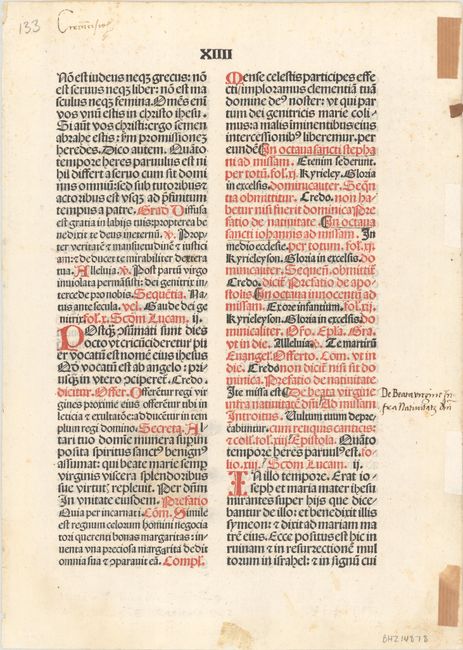 133
XIIII
Nō est iudeus neqꝫ grecus: nō
est seruus neqꝫ liber: nō est ma
sculus neqꝫ femina. Om̄es em̄
vos vnū estis in christo ihesu.
Si aūt vos christi: ergo semen
abrahe estis: ⁊ m̄ promissionez
heredes. Dico autem. Quāto
tempore heres paruulus est ni
hil differt a seruo cum sit domi
nus omniū: sed sub tutoribus ⁊
actoribus est vsqꝫ ad p̄finitum
tempus a patre. Grad Diffusa
est gratia in labijs tuis: propterea be
nedixit te deus ineternū. ℣. Prop
ter veritatē ⁊ mansuetudinē ⁊ iustici
am: ⁊ deducet te mirabiliter dextera
tua. Alleluia. ℣. Post partū virgo
inuiolata permāsisti: dei genitrix in
tercede pro nobis. Sequētia. Na
tus ante secula. vel. Gaude dei ge
nitrix fol. x. Scdm Lucam. ij.
Postqꝫ ꝯsūmati sunt dies
octo vt circūcideretur pu
er vocatū est nomē eius ihesus
Nō vocatū est ab angelo: pri
usqꝫ in vtero ꝯciperet. Credo.
dicitur. Offer. Offerētur regi vir
gines proxime eius offerētur tibi in
leticia ⁊ exultatiōe: adducētur in tem
plum regi domino. Secreta. Al
tari tuo domie munera suppo
posita spiritus sanct⁹ benign⁹
assumat: qui beate marie semp
virginis viscera splendoribus
sue virtut⁾ repleuit. Per dūm
In vnitate eiusdem. Prefatio
Quia per incarnati. Cōm. Simile
est regnum celorum homini negocia
tori querenti bonas margaritas: in
uenta vna preciosa margarita dedit
omnia sua ⁊ ꝯparauit eā. Compl.
Mense celestis participes effe
cti: imploramus clementiā tuā
domine de⁹ noster: vt qui par
tum dei genitricis marie coli
mus: a malis iminentibus eius
intercessionib⁹ liberemur. per
eundē In octaua sancti stepha
ni ad missam. Etenim sederunt.
per totū. fol. xj. Kyrieley. Gloria
in excelsis. dominicaliter. Seqūn
tia obmittitur. Credo. non ha
betur nisi fuerit dominica Pre
fatio de natiuitate. In octaua
sancti iohannis ad missam. In
medio ecclesie. per totum. fol. xij.
Kyrieleyson. Gloria in excelsis. do
minicaliter. Sequen. obmittit᷑
Credo. dicit᷑ Prefatio de apo
stolis. In octaua innocentū ad
missam. Ex ore infantium. fol. xij.
Kyrieleyson. Gloria in excelsis. do
minicaliter. Oro. Epla. Gra.
vt in die. Alleluia. ℣. Te martirū
Euangel. Offerto. Com. vt in
die. Credo non dicit᷑ nisi sit do
minica. Prefatio de natiuitate
Ite missa est De beata virgine
infra natiuitatē dm̄ Ad missam
Introitus. Uultum tuum depre
cabuntur. cum reliquis canticis:
⁊ coll. fol. xiij. Epistola. Quāto
tempore heres paruul⁹ est. fo
lio. xiij. Scdm Lucam. ij.
In illo tempore. Erat io
seph et maria mater ihesu
mirantes super hijs que dice
bantur de illo: et benedixit illis
symeon: ⁊ dixit ad mariam ma
trē eius. Ecce positus est hic in
ruinam ⁊ in resurrectionē mul
torum in israhel: ⁊ in signū cui
De Beata virgine in
fra Natiuitatē dm̄
BHZ14878